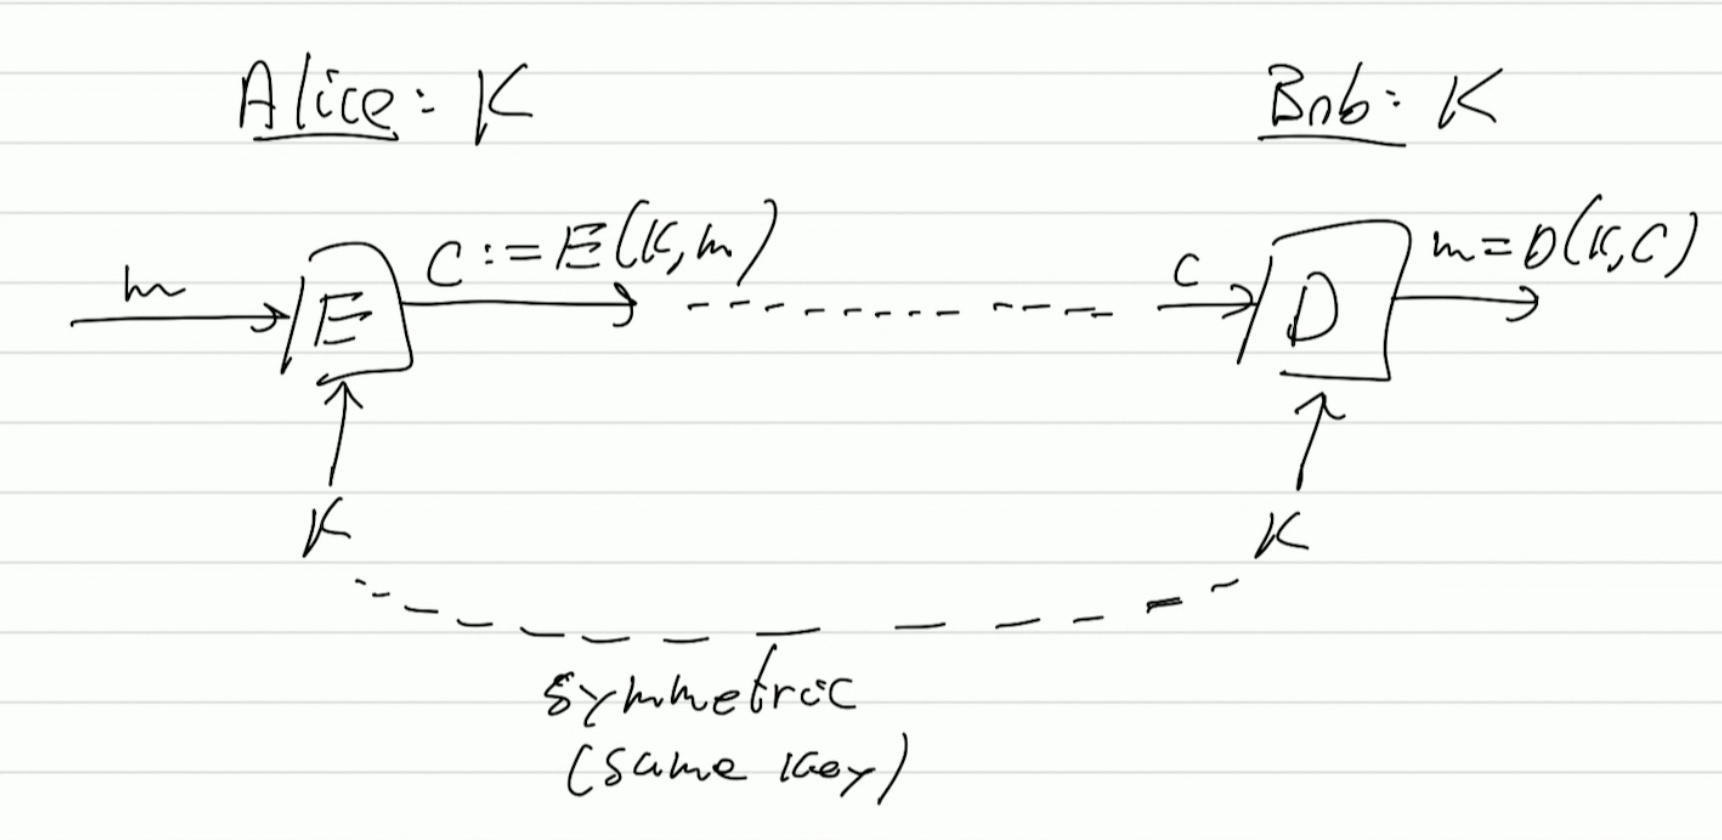 Alice: K
Bob: K
m
E
C := E(K,m)
C
D
m = D(K,C)
K
K
symmetric
(same key)